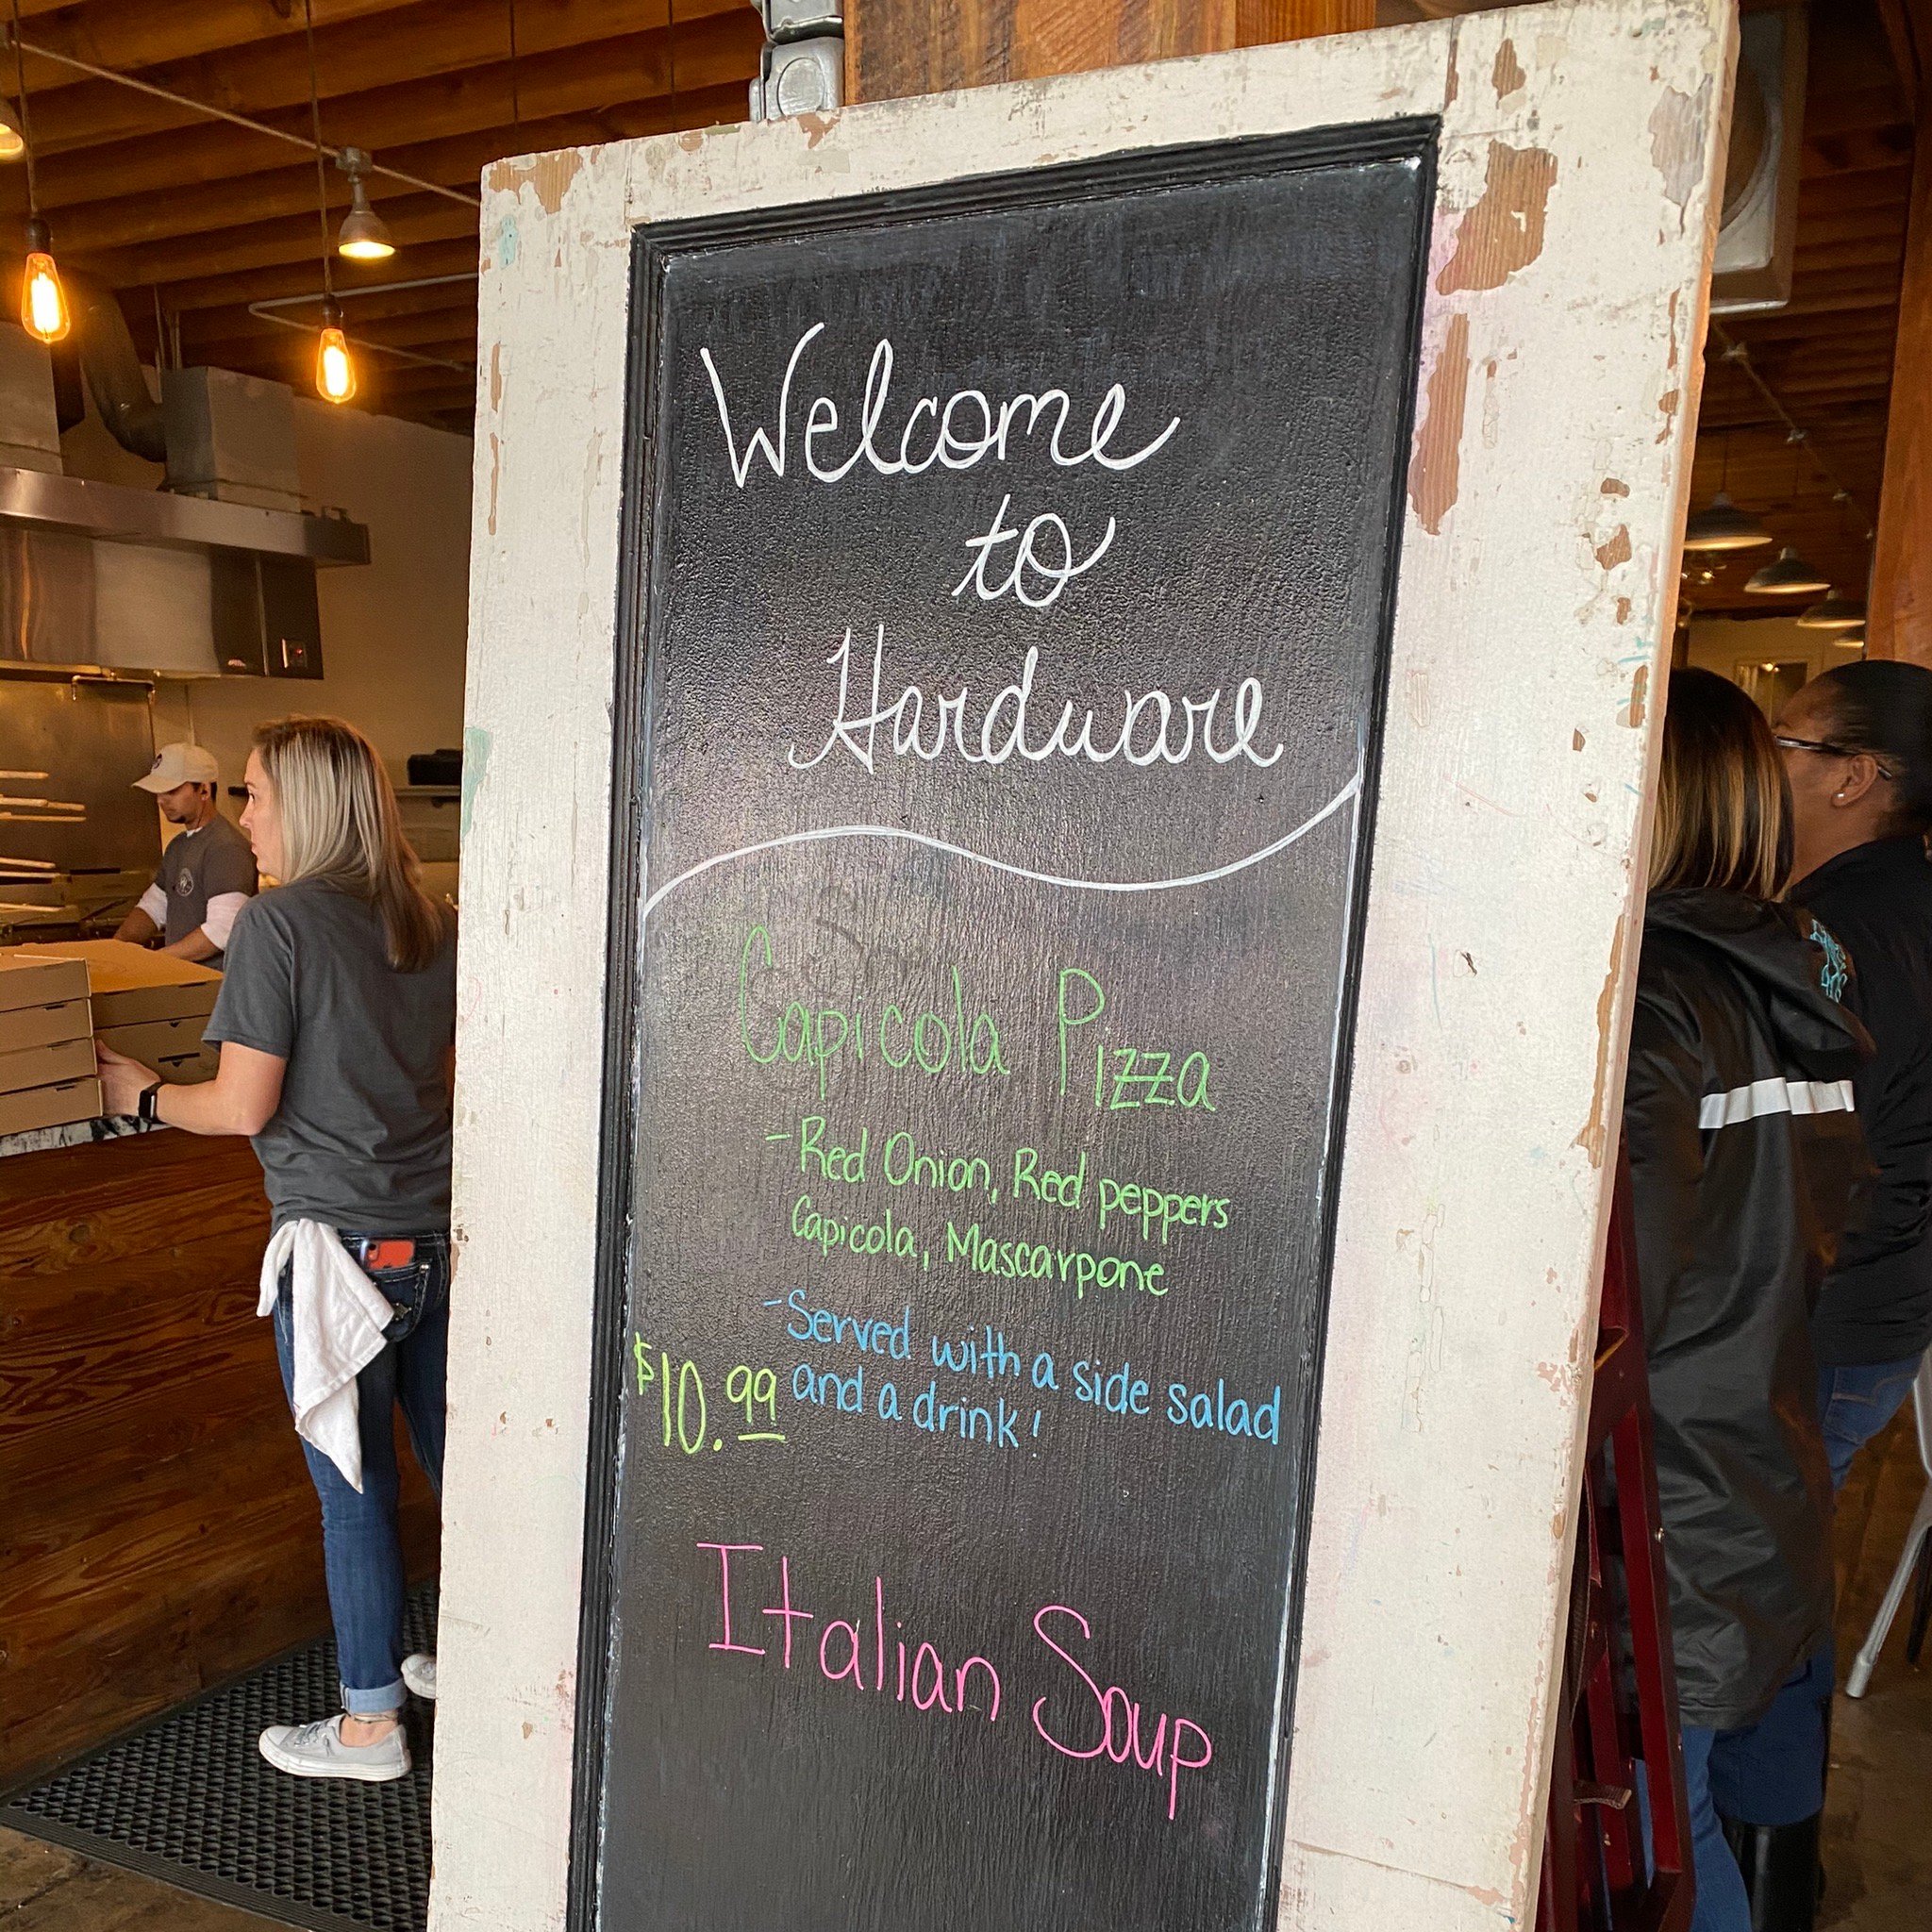 Welcome
to
Hardware
Capicola Pizza
-Red Onion, Red peppers
Capicola, Mascarpone
-Served with a side salad
$10.99 and a drink!
Italian Soup